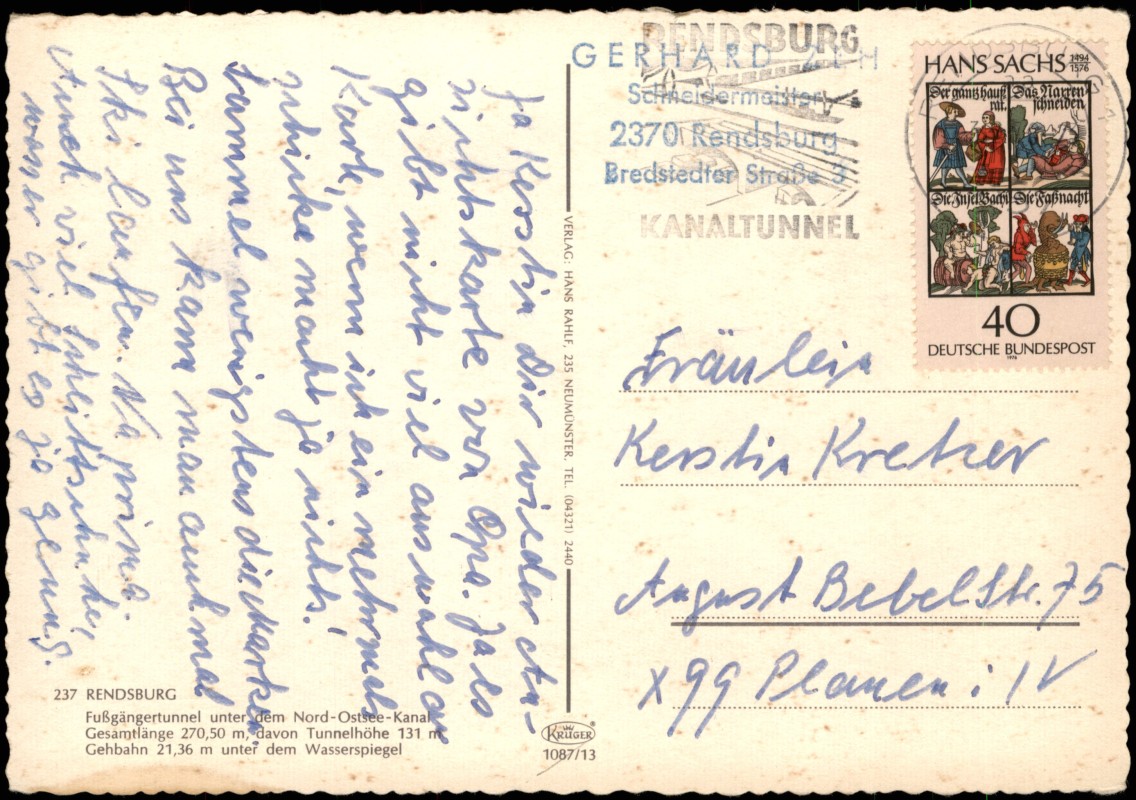 RENDSBURG
KANALTUNNEL
GERHARD
Schneidermeister
2370 Rendsburg
Bredstedter Straße 3
HANS SACHS 1494 1576
Der gantz hauß
rat.
Das Narren
schneiden.
Die Insel Bachi
Die Faßnacht
40
DEUTSCHE BUNDESPOST
1976
Ja Kerstin Dir wieder An-
sichtskarte von Opa. Ja es
gibt nicht viel auswahl an
Karte, wenn ich ein mehrmals
schicke macht ja nichts!
Sammel wenigstens die Marke.
Bei uns kann man auch mal
Ski laufen. Na prima.
Auch viel Schlittschuhe,
wasser gibt es ja genug.
VERLAG: HANS RAHLF, 235 NEUMÜNSTER, TEL. (04321) 2440
Fräulein
Kerstin Kretzer
August Bebel Str. 75
X99 Plauen i/V
237 RENDSBURG
Fußgängertunnel unter dem Nord-Ostsee-Kanal
Gesamtlänge 270,50 m, davon Tunnelhöhe 131 m
Gehbahn 21,36 m unter dem Wasserspiegel
KRÜGER
1087/13